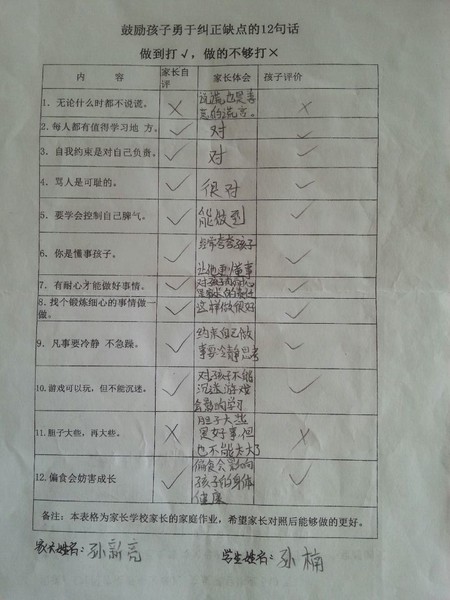 鼓励孩子勇于纠正缺点的12句话
做到打√，做的不够打×
内 容 家长自评 家长体会 孩子评价
1. 无论什么时都不说谎。 × 说谎也是善意的谎言。 ×
2. 每人都有值得学习地 方。 √ 对 √
3. 自我约束是对自己负责。 √ 对 √
4. 骂人是可耻的。 √ 很对 √
5. 要学会控制自己脾气。 √ 能做到 √
6. 你是懂事孩子。 √ 经常夸奖孩子 让他更懂事 √
7. 有耐心才能做好事情。 √ 对孩子 √
8. 找个锻炼细心的事情做一做。 √ 这样做很好 √
9. 凡事要冷静 不急躁。 √ 约束自己做事要冷静思考 √
10. 游戏可以玩，但不能沉迷。 √ 对孩子不能沉迷游戏会影响学习 √
11. 胆子大些，再大些。 × 胆子大些是好事,但也不能太大了 ×
12. 偏食会妨害成长 √ 偏食会影响孩子的身体健康 √
备注：本表格为家长学校家长的家庭作业，希望家长对照后能够做的更好。
家长姓名：孙新亮 学生姓名：孙楠